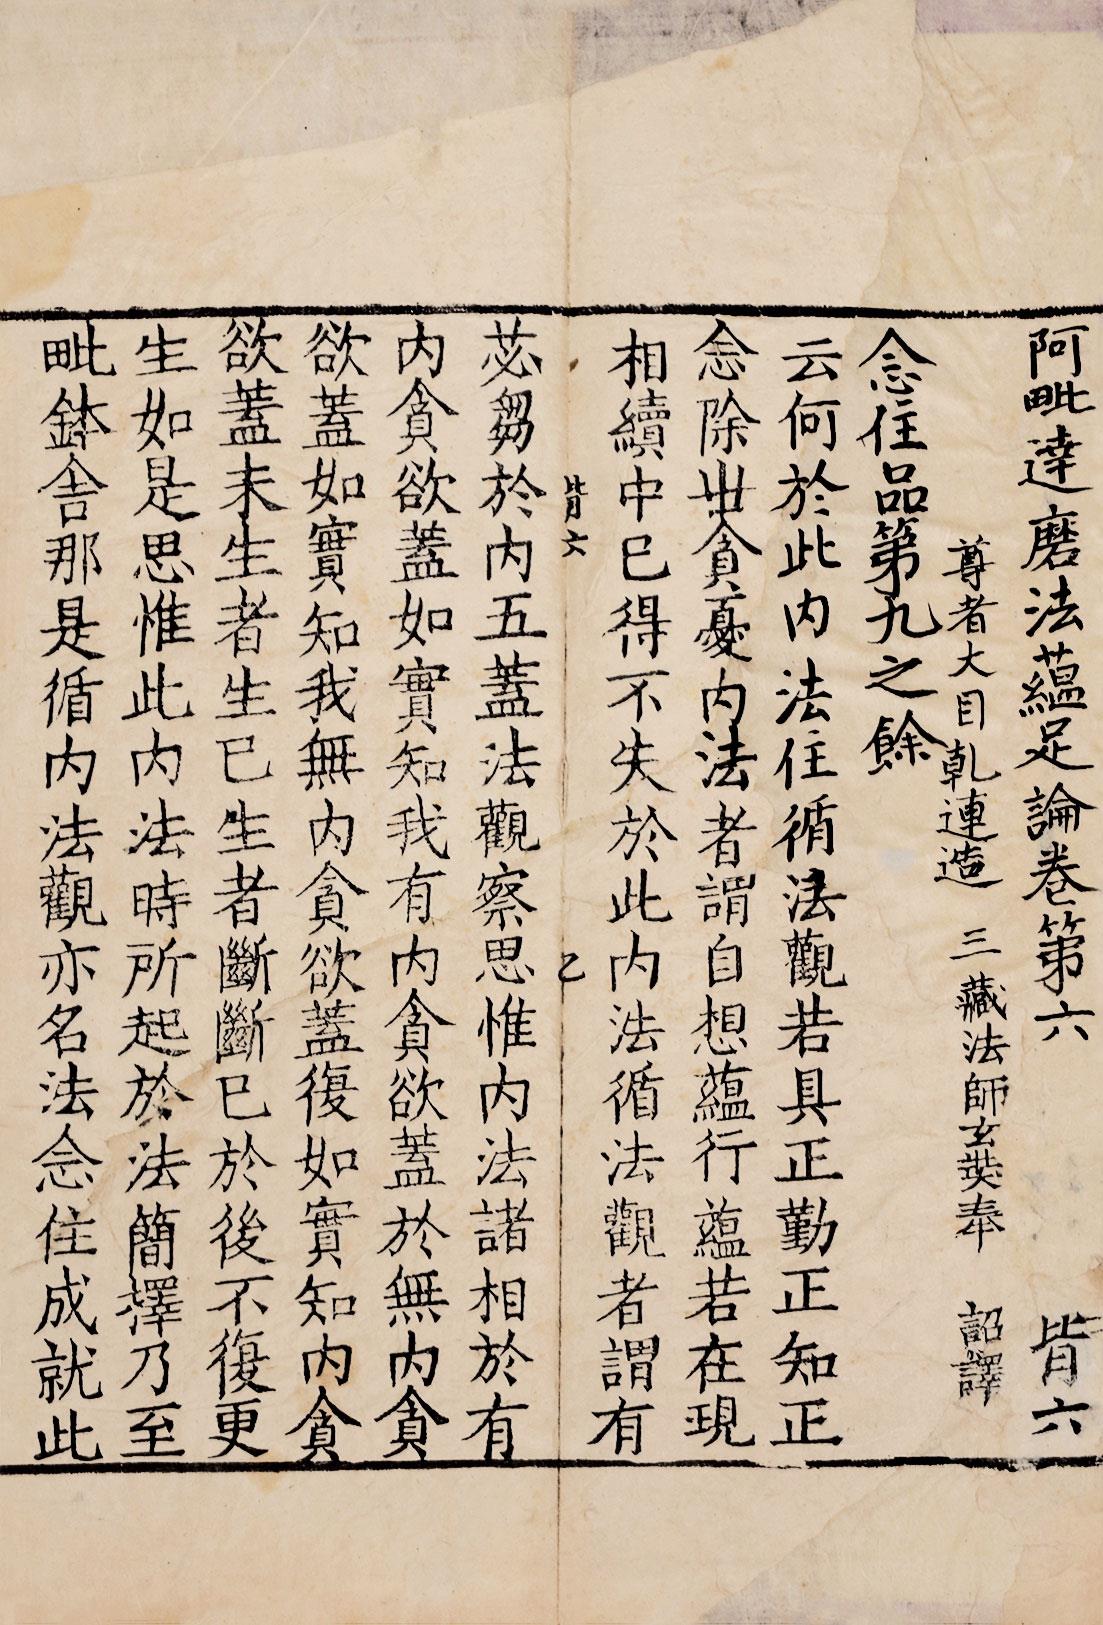 阿毗達磨法蘊足論卷第六 皆六
尊者大目乹連造 三藏法師玄奘奉 詔譯
念住品第九之餘
云何於此内法住循法觀若具正勤正知正
念除世貪憂内法者謂自想蘊行蘊若在現
相續中已得不失於此内法循法觀者謂有
皆六 乙
苾芻於内五蓋法觀察思惟内法諸相於有
内貪欲蓋如實知我有内貪欲蓋於無内貪
欲蓋如實知我無内貪欲蓋復如實知内貪
欲蓋未生者生已生者斷斷已於後不復更
生如是思惟此内法時所起於法簡擇乃至
毗鉢舍那是循内法觀亦名法念住成就此